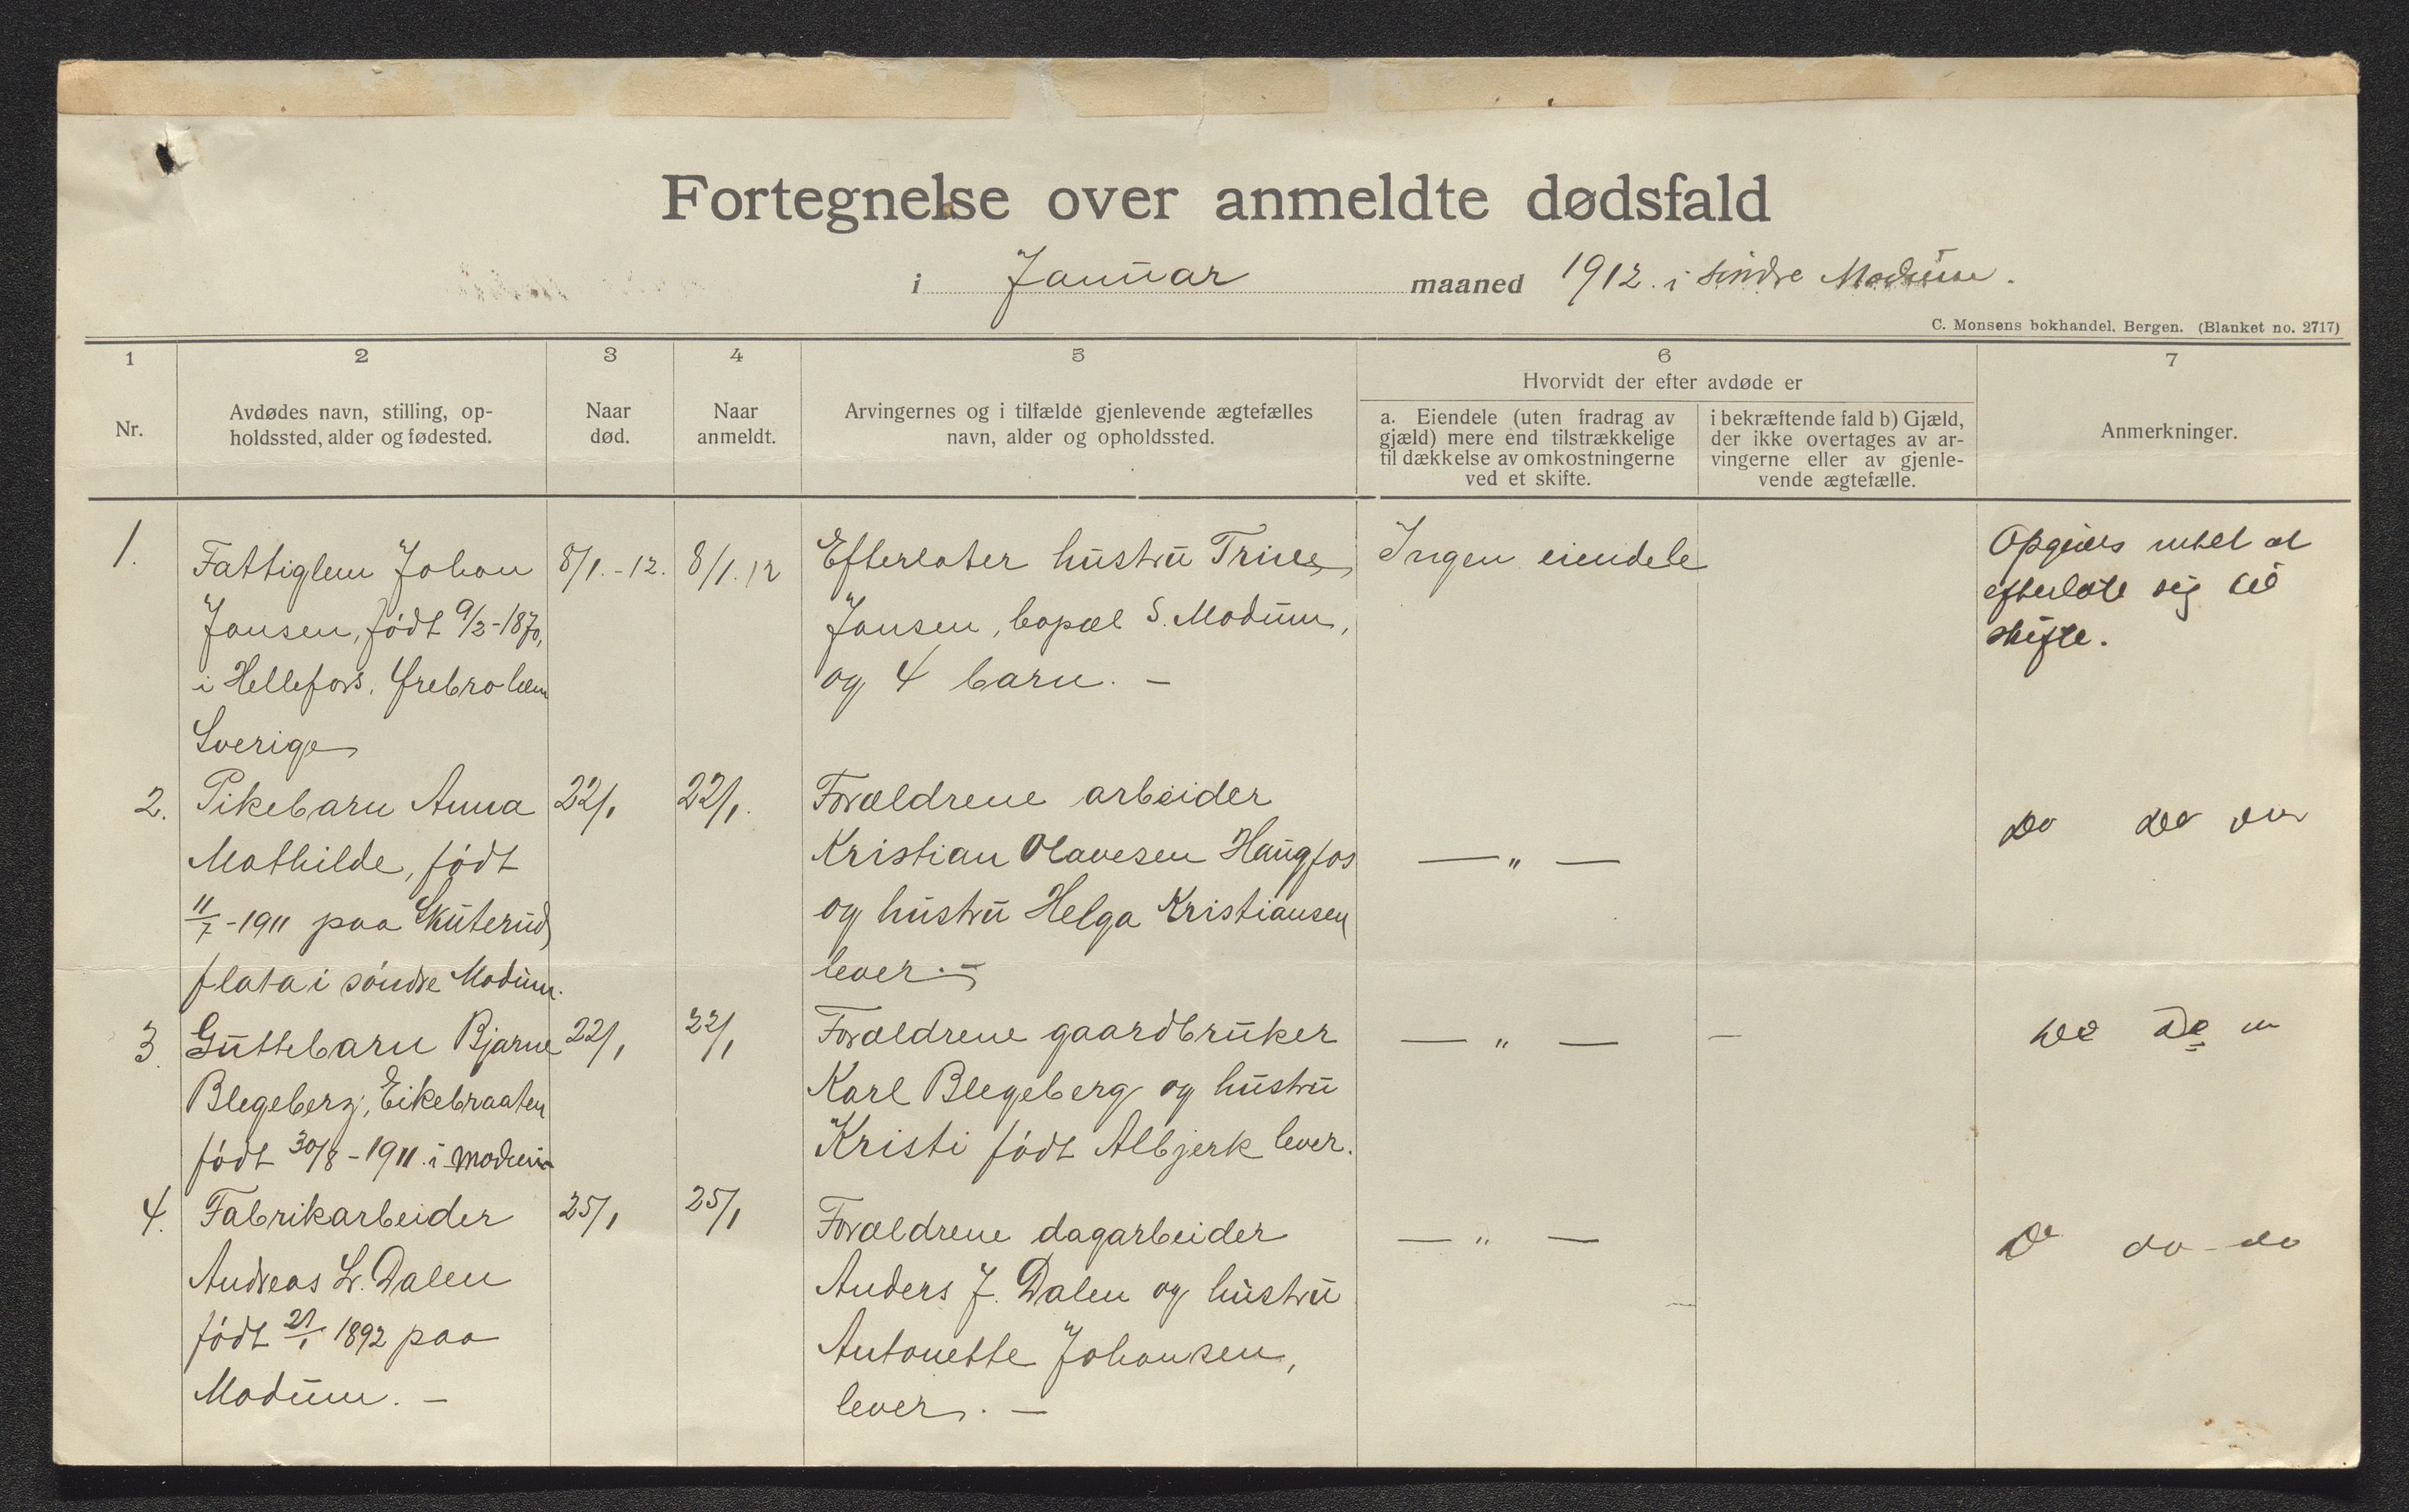 Fortegnelse over anmeldte dødsfald
i Januar maaned 1912. i søndre Modum.
C. Monsens bokhandel, Bergen. (Blanket no. 2717)
1 2 3 4 5 6 7
Nr.
Avdødes navn, stilling, op-
holdssted, alder og fødested.
Naar
død.
Naar
anmeldt.
Arvingernes og i tilfælde gjenlevende ægtefælles
navn, alder og opholdssted.
Hvorvidt der efter avdøde er
a. Eiendele (uten fradrag av
gjæld) mere end tilstrækkelige
til dækkelse av omkostningerne
ved et skifte.
i bekræftende fald b) Gjæld,
der ikke overtages av ar-
vingerne eller av gjenle-
vende ægtefælle.
Anmerkninger.
1.
Fattiglem Johan
Jansen, født 9/2-1870,
i Hellefors. Ørebro len
Sverige
8/1.-12.
8/1.12
Efterlater hustru Trine
Jansen, bopæl S. Modum,
og 4 barn. —
Ingen eiendele
Opgives intet at
efterlate sig til
skifte.
2.
Pikebarn Anna
Mathilde, født
11/7-1911 paa Skuterud
flata i søndre Modum.
22/1
22/1.
Forældrene arbeider
Kristian Olavesen Haugfos
og hustru Helga Kristiansen
lever. —
— " —
Do do do
3.
Guttebarn Bjarne
Blegeberg, Eikebraaten
født 30/8-1911 i Modum
22/1
22/1
Forældrene gaardbruker
Karl Blegeberg og hustru
Kristi født Albjerk lever.
— " — —
Do
4.
Fabrikarbeider
Andreas Dalen
født 21/1 1892 paa
Modum. —
25/1
25/1
Forældrene dagarbeider
Anders J. Dalen og hustru
Antonette Johansen,
lever. —
— " —
Do do - do